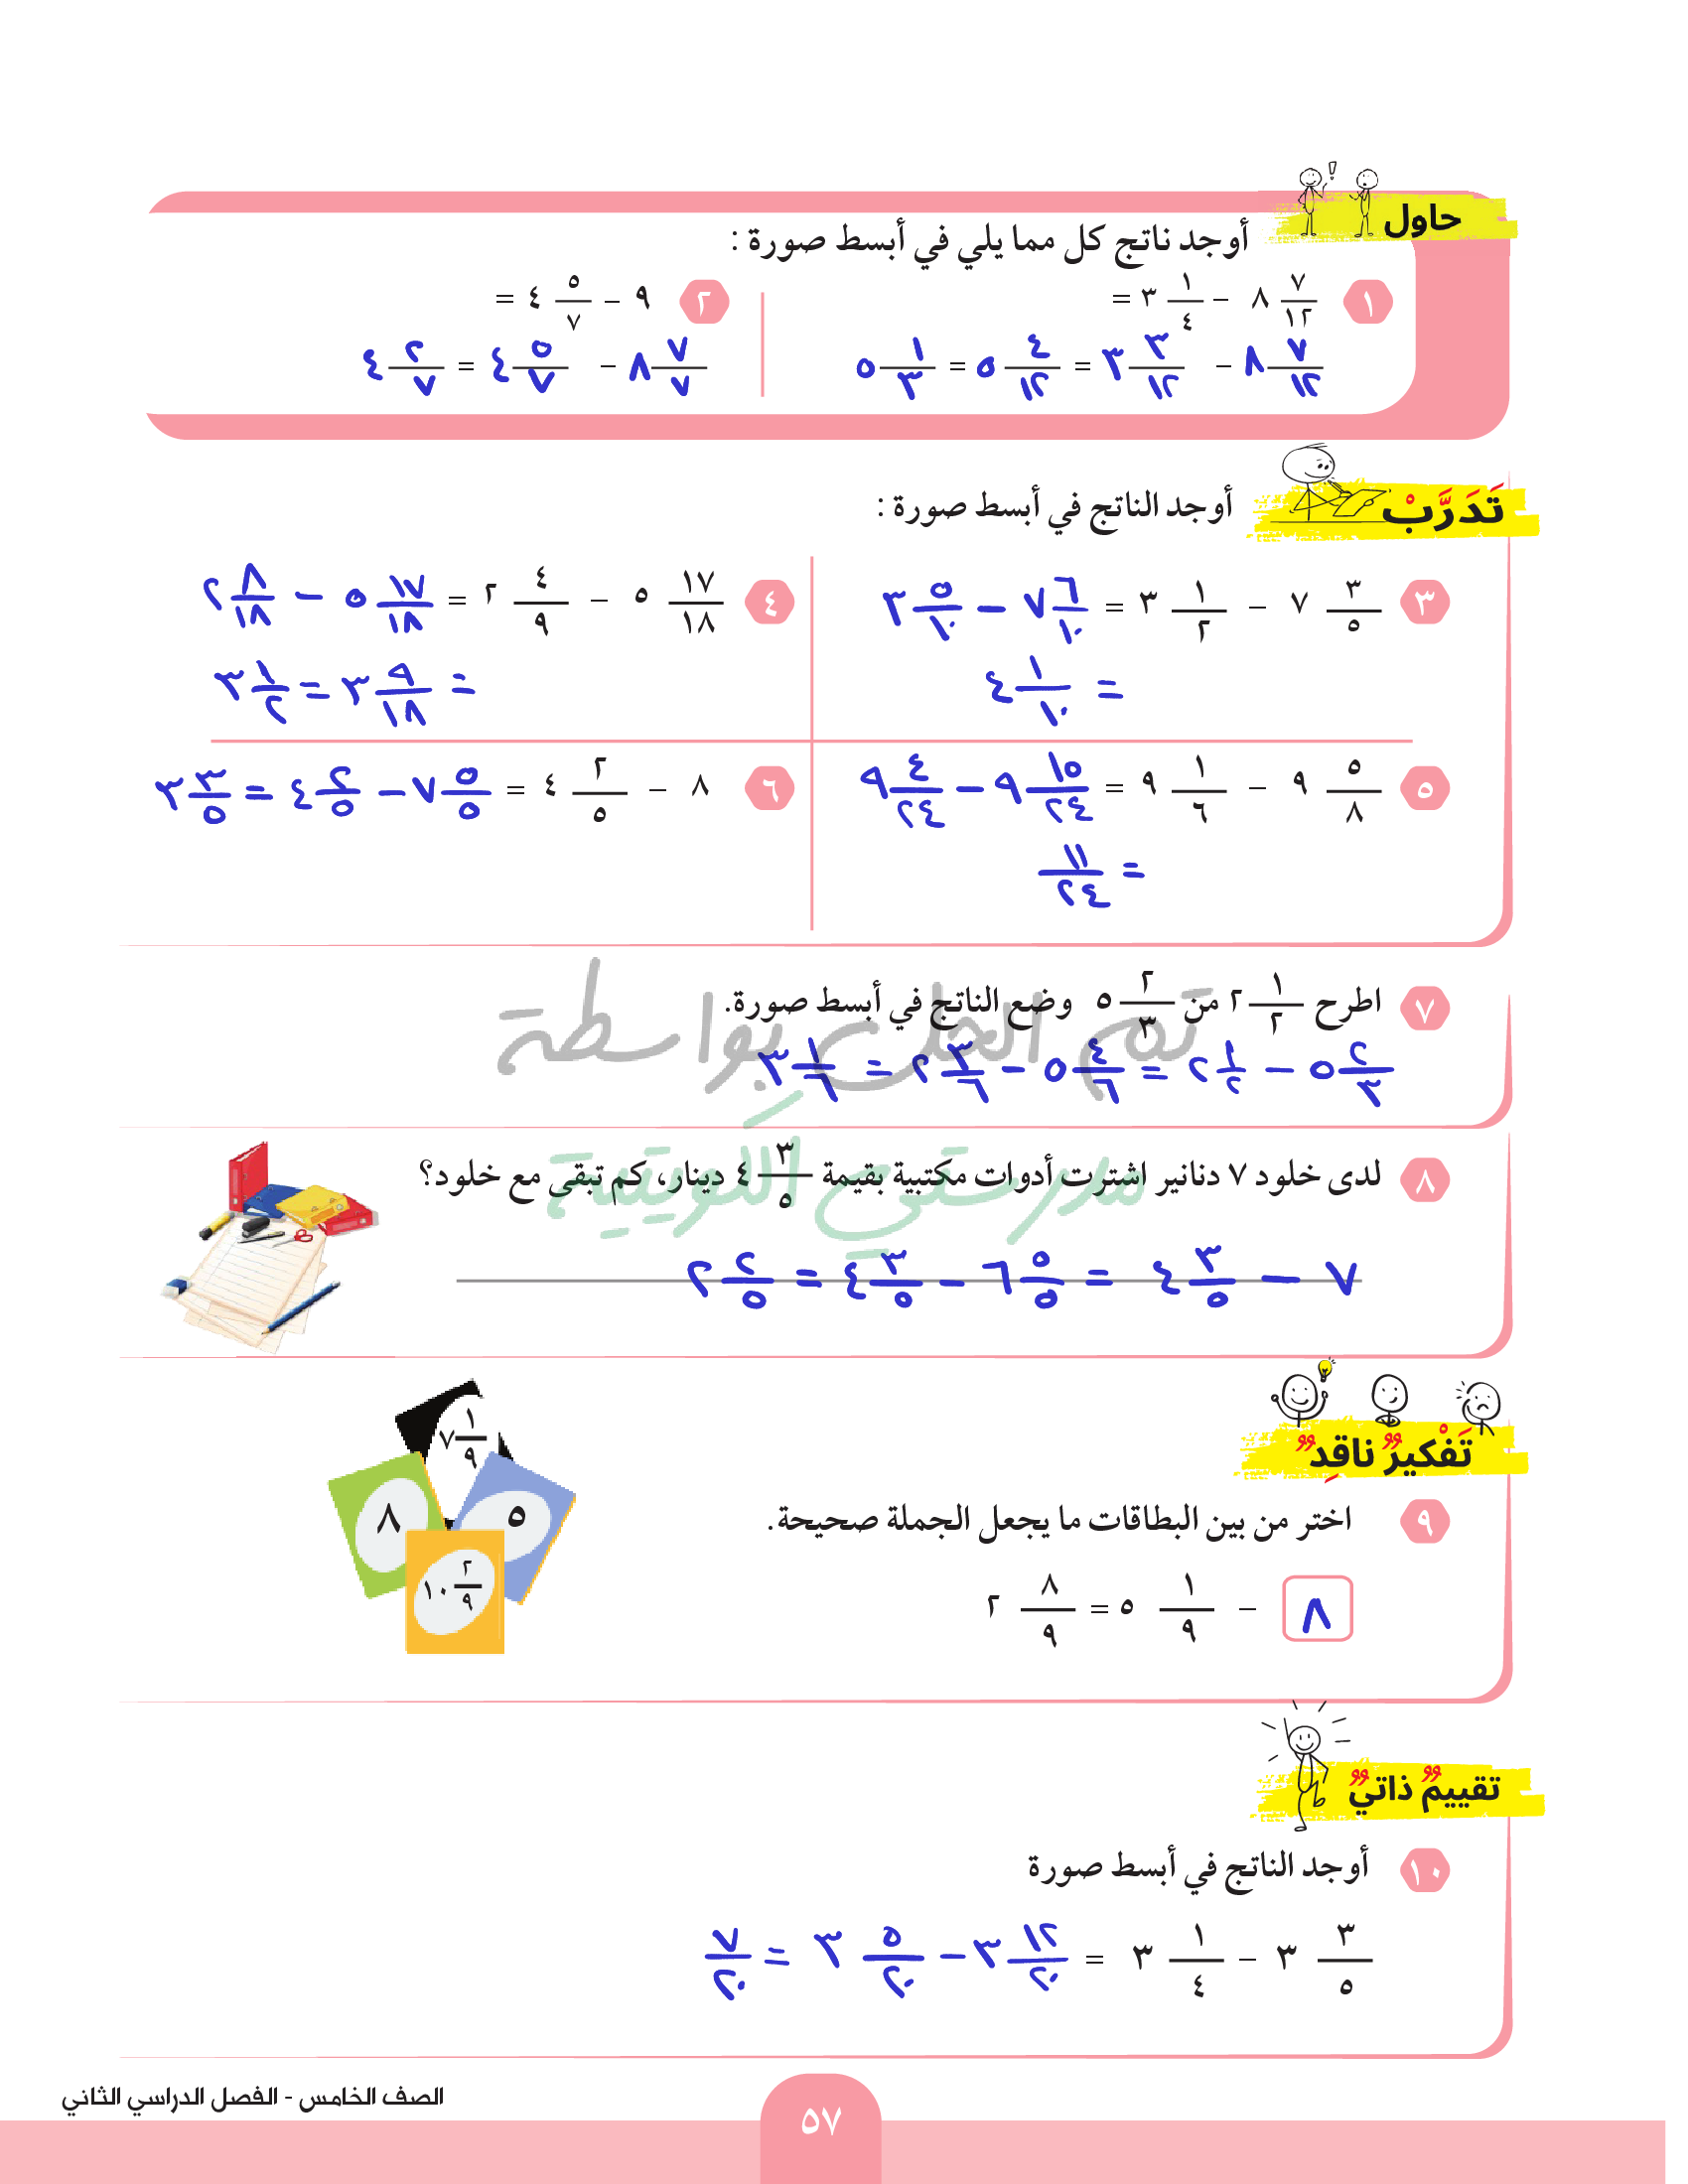 حاول
أوجد ناتج كل مما يلي في أبسط صورة :
١ ٨ ٧/١٢ − ٣ ١/٤ =
٨ ٧/١٢ − ٣ ٣/١٢ = ٥ ٤/١٢ = ٥ ١/٣
٢ ٩ − ٤ ٥/٧ =
٨ ٧/٧ − ٤ ٥/٧ = ٤ ٢/٧
تَدَرَّبْ
أوجد الناتج في أبسط صورة :
٣ ٧ ٣/٥ − ٣ ١/٢ = ٧ ٦/١٠ − ٣ ٥/١٠
= ٤ ١/١٠
٤ ٥ ١٧/١٨ − ٢ ٤/٩ = ٥ ١٧/١٨ − ٢ ٨/١٨
= ٣ ٩/١٨ = ٣ ١/٢
٥ ٩ ٥/٨ − ٩ ١/٦ = ٩ ١٥/٢٤ − ٩ ٤/٢٤
= ١١/٢٤
٦ ٨ − ٤ ٢/٥ = ٧ ٥/٥ − ٤ ٢/٥ = ٣ ٣/٥
٧ اطرح ٢ ١/٢ من ٥ ٢/٣ وضع الناتج في أبسط صورة.
٥ ٢/٣ − ٢ ١/٢ = ٥ ٤/٦ − ٢ ٣/٦ = ٣ ١/٦
تم الحل بواسطة
مدرستي الكويتية
٨ لدى خلود ٧ دنانير اشترت أدوات مكتبية بقيمة ٤ ٣/٥ دينار، كم تبقى مع خلود؟
٧ − ٤ ٣/٥ = ٦ ٥/٥ − ٤ ٣/٥ = ٢ ٢/٥
تَفْكيرٌ ناقِدٌ
٩ اختر من بين البطاقات ما يجعل الجملة صحيحة.
٧ ١/٩
٨
٥
١٠ ٢/٩
٨ − ٥ ١/٩ = ٢ ٨/٩
تقييمٌ ذاتيٌ
١٠ أوجد الناتج في أبسط صورة
٣ ٣/٥ − ٣ ١/٤ = ٣ ١٢/٢٠ − ٣ ٥/٢٠ = ٧/٢٠
الصف الخامس - الفصل الدراسي الثاني
٥٧